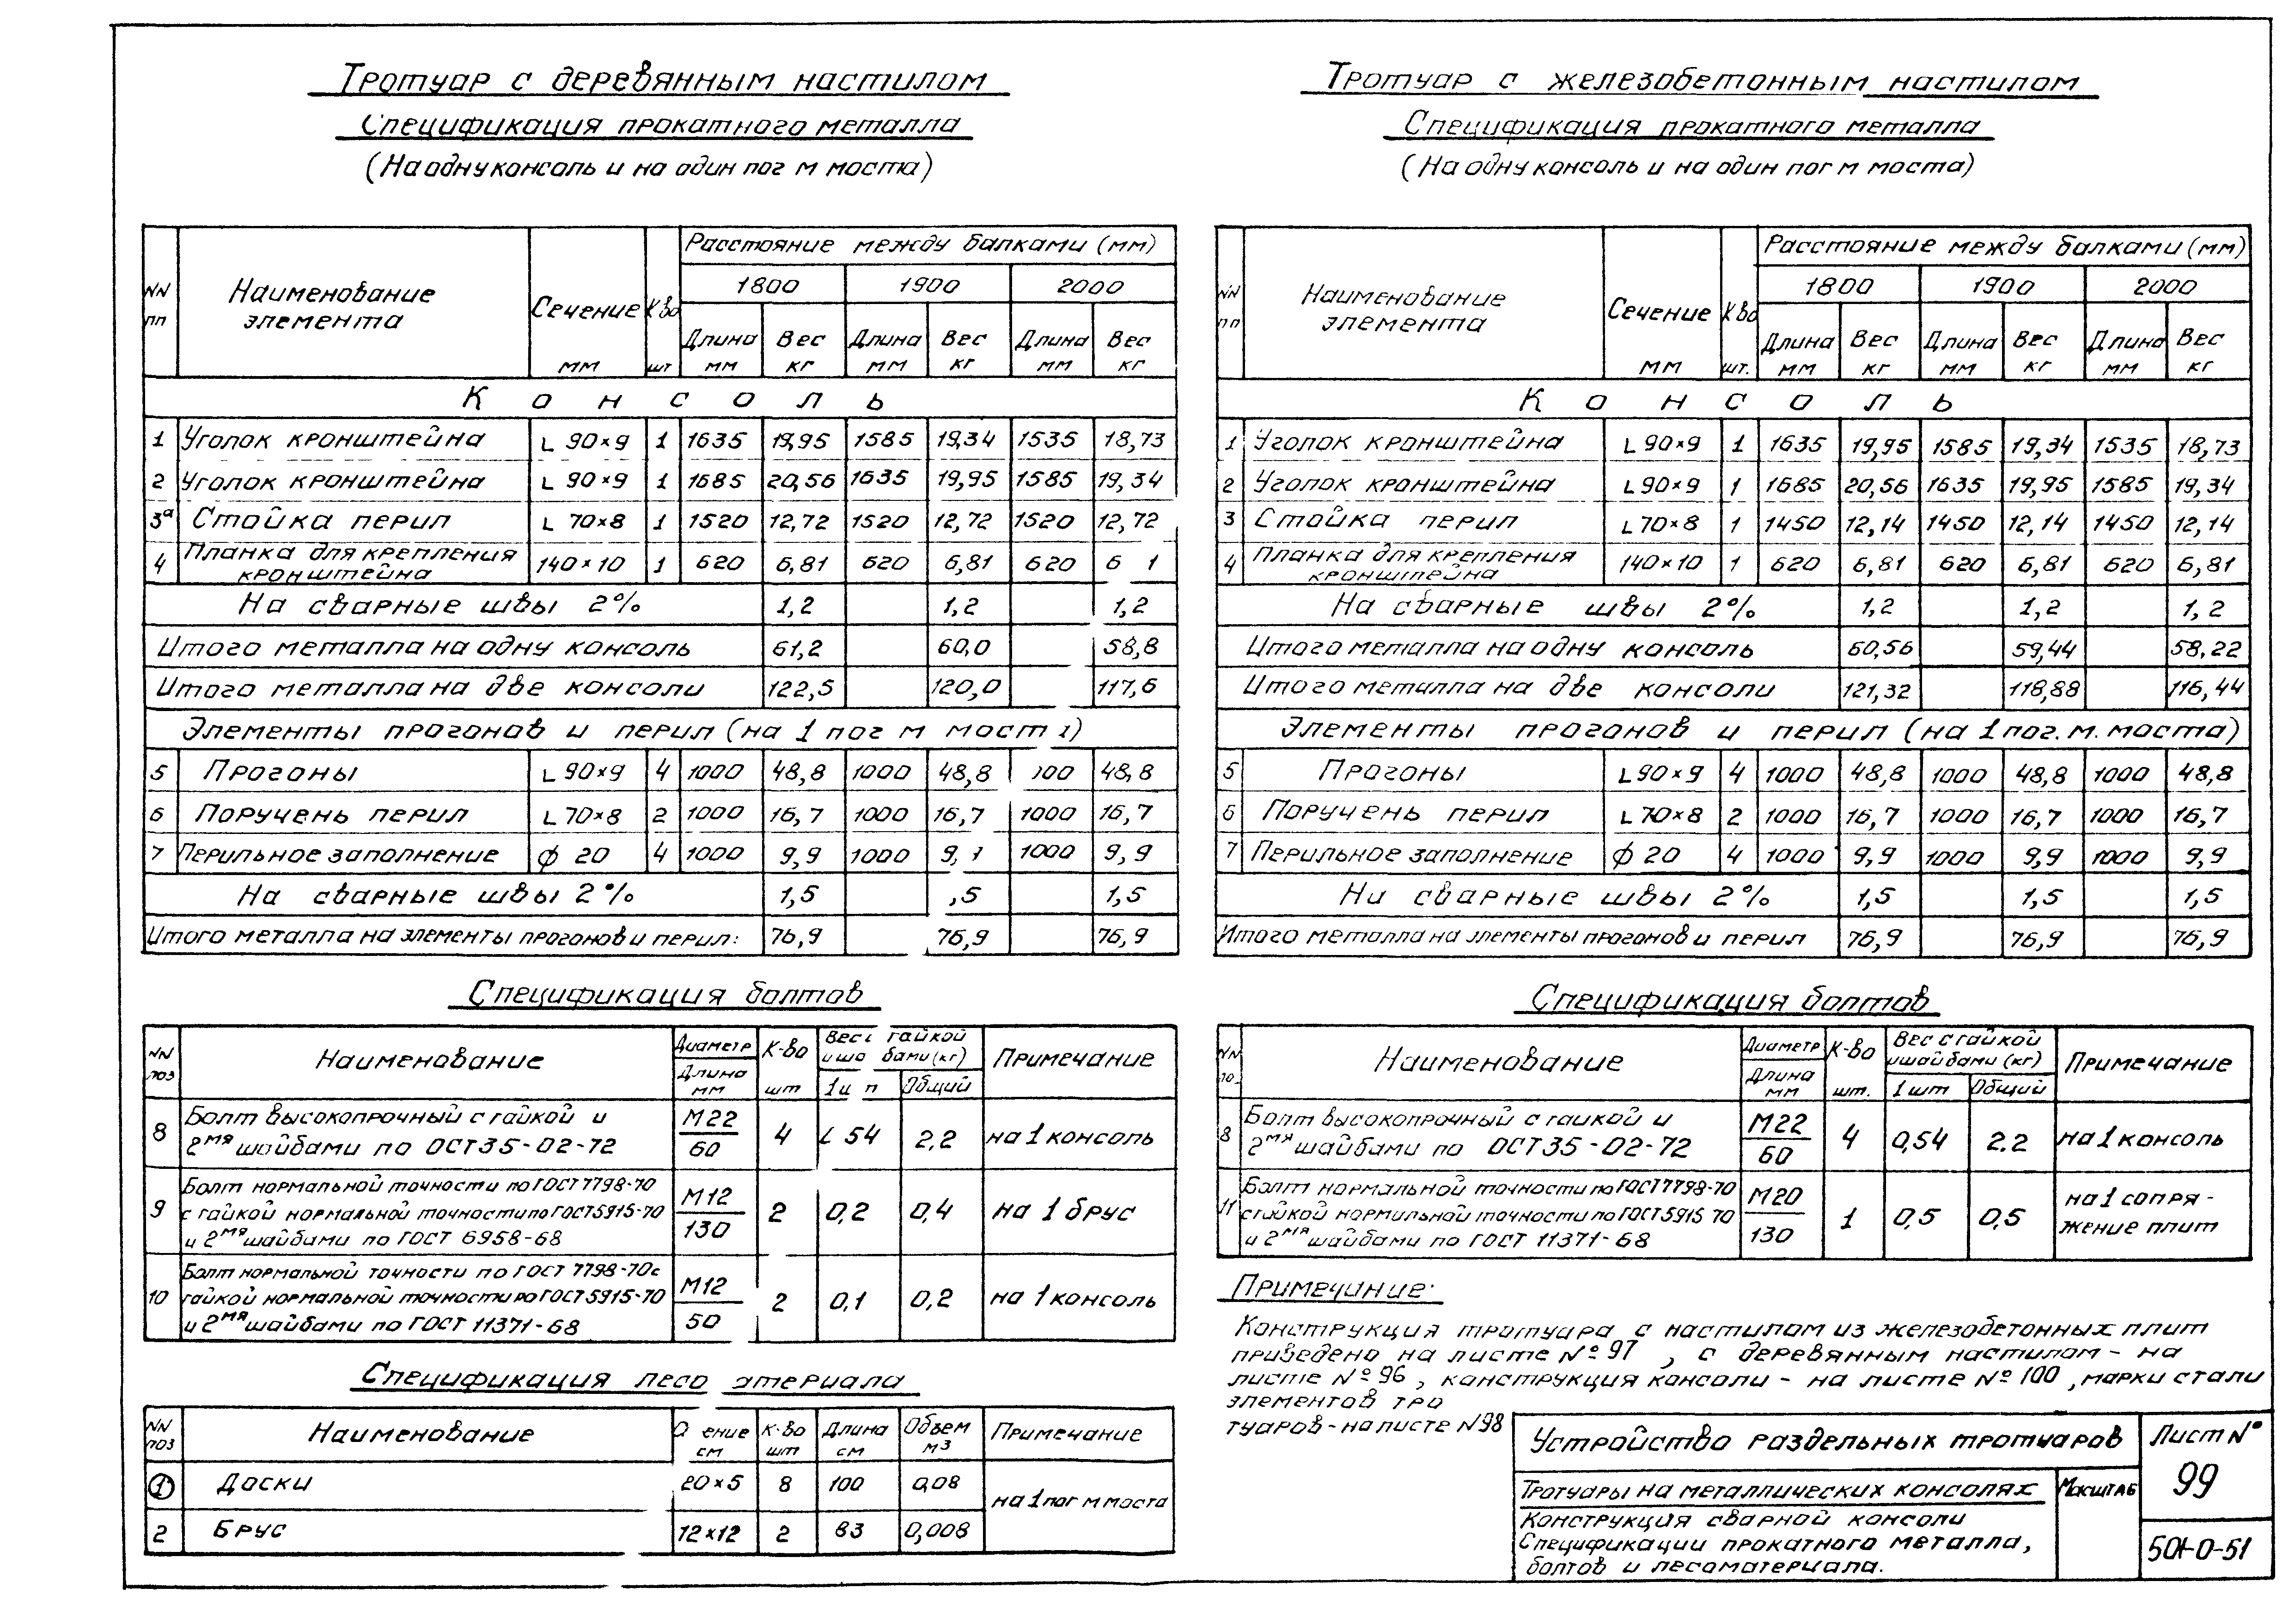 Тротуар с деревянным настилом
Спецификация прокатного металла
(На одну консоль и на один пог м моста)
NN пп Наименование элемента Сечение мм К-во шт Расстояние между балками (мм)
1800 1900 2000
Длина мм Вес кг Длина мм Вес кг Длина мм Вес кг
Консоль
1 Уголок кронштейна L 90×9 1 1635 19,95 1585 19,34 1535 18,73
2 Уголок кронштейна L 90×9 1 1685 20,56 1635 19,95 1585 19,34
3а Стойка перил L 70×8 1 1520 12,72 1520 12,72 1520 12,72
4 Планка для крепления кронштейна 140×10 1 620 6,81 620 6,81 620 6 1
На сварные швы 2% 1,2 1,2 1,2
Итого металла на одну консоль 61,2 60,0 58,8
Итого металла на две консоли 122,5 120,0 117,6
Элементы прогонов и перил (на 1 пог м моста)
5 Прогоны L 90×9 4 1000 48,8 1000 48,8 00 48,8
6 Поручень перил L 70×8 2 1000 16,7 1000 16,7 1000 16,7
7 Перильное заполнение ϕ 20 4 1000 9,9 1000 9, 1000 9,9
На сварные швы 2% 1,5 ,5 1,5
Итого металла на элементы прогонов и перил: 76,9 76,9 76,9
Спецификация болтов
NN поз Наименование Диаметр Длина мм К-во шт Вес с гайкой и ша бами (кг) Примечание
Общий
8 Болт высокопрочный с гайкой и
2мя шайбами по ОСТ 35-02-72 М22 60 4 54 2,2 на 1 консоль
9 Болт нормальной точности по ГОСТ 7798-70
с гайкой нормальной точности по ГОСТ 5915-70
и 2мя шайбами по ГОСТ 6958-68 М12 130 2 0,2 0,4 на 1 брус
10 Болт нормальной точности по ГОСТ 7798-70 с
гайкой нормальной точности по ГОСТ 5915-70
и 2мя шайбами по ГОСТ 11371-68 М12 50 2 0,1 0,2 на 1 консоль
Спецификация лесо атериала
NN поз Наименование ение см К-во шт Длина см Объем м3 Примечание
1 Доски 20×5 8 100 0,08 на 1 пог м моста
2 Брус 12×12 2 83 0,008
Тротуар с железобетонным настилом
Спецификация прокатного металла
(На одну консоль и на один пог м моста)
NN пп Наименование элемента Сечение мм К-во шт. Расстояние между балками (мм)
1800 1900 2000
Длина мм Вес кг Длина мм Вес кг Длина мм Вес кг
Консоль
1 Уголок кронштейна L 90×9 1 1635 19,95 1585 19,34 1535 18,73
2 Уголок кронштейна L 90×9 1 1685 20,56 1635 19,95 1585 19,34
3 Стойка перил L 70×8 1 1450 12,14 1450 12,14 1450 12,14
4 Планка для крепления кронштейна 140×10 1 620 6,81 620 6,81 620 6,81
На сварные швы 2% 1,2 1,2 1,2
Итого металла на одну консоль 60,56 59,44 58,22
Итого металла на две консоли 121,32 118,88 116,44
Элементы прогонов и перил (на 1 пог. м. моста)
5 Прогоны L 90×9 4 1000 48,8 1000 48,8 1000 48,8
6 Поручень перил L 70×8 2 1000 16,7 1000 16,7 1000 16,7
7 Перильное заполнение ϕ 20 4 1000 9,9 1000 9,9 1000 9,9
На сварные швы 2% 1,5 1,5 1,5
Итого металла на элементы прогонов и перил 76,9 76,9 76,9
Спецификация болтов
NN по Наименование Диаметр Длина мм К-во шт. Вес с гайкой и шайбами (кг) Примечание
1 шт Общий
8 Болт высокопрочный с гайкой и
2мя шайбами по ОСТ 35-02-72 М22 60 4 0,54 2.2 на 1 консоль
11 Болт нормальной точности по ГОСТ 7798-70
с гайкой нормальной точности по ГОСТ 5915 70
и 2мя шайбами по ГОСТ 11371-68 М20 130 1 0,5 0,5 на 1 сопря-
жение плит
Примечание:
Конструкция тротуара с настилом из железобетонных плит
приведено на листе № 97, с деревянным настилом - на
листе № 96, конструкция консоли - на листе № 100, марки стали
элементов тро
туаров - на листе N 98
Устройство раздельных тротуаров
Тротуары на металлических консолях
Конструкция сварной консоли
Спецификации прокатного металла,
болтов и лесоматериала.
Масштаб
Лист №
99
501-0-51